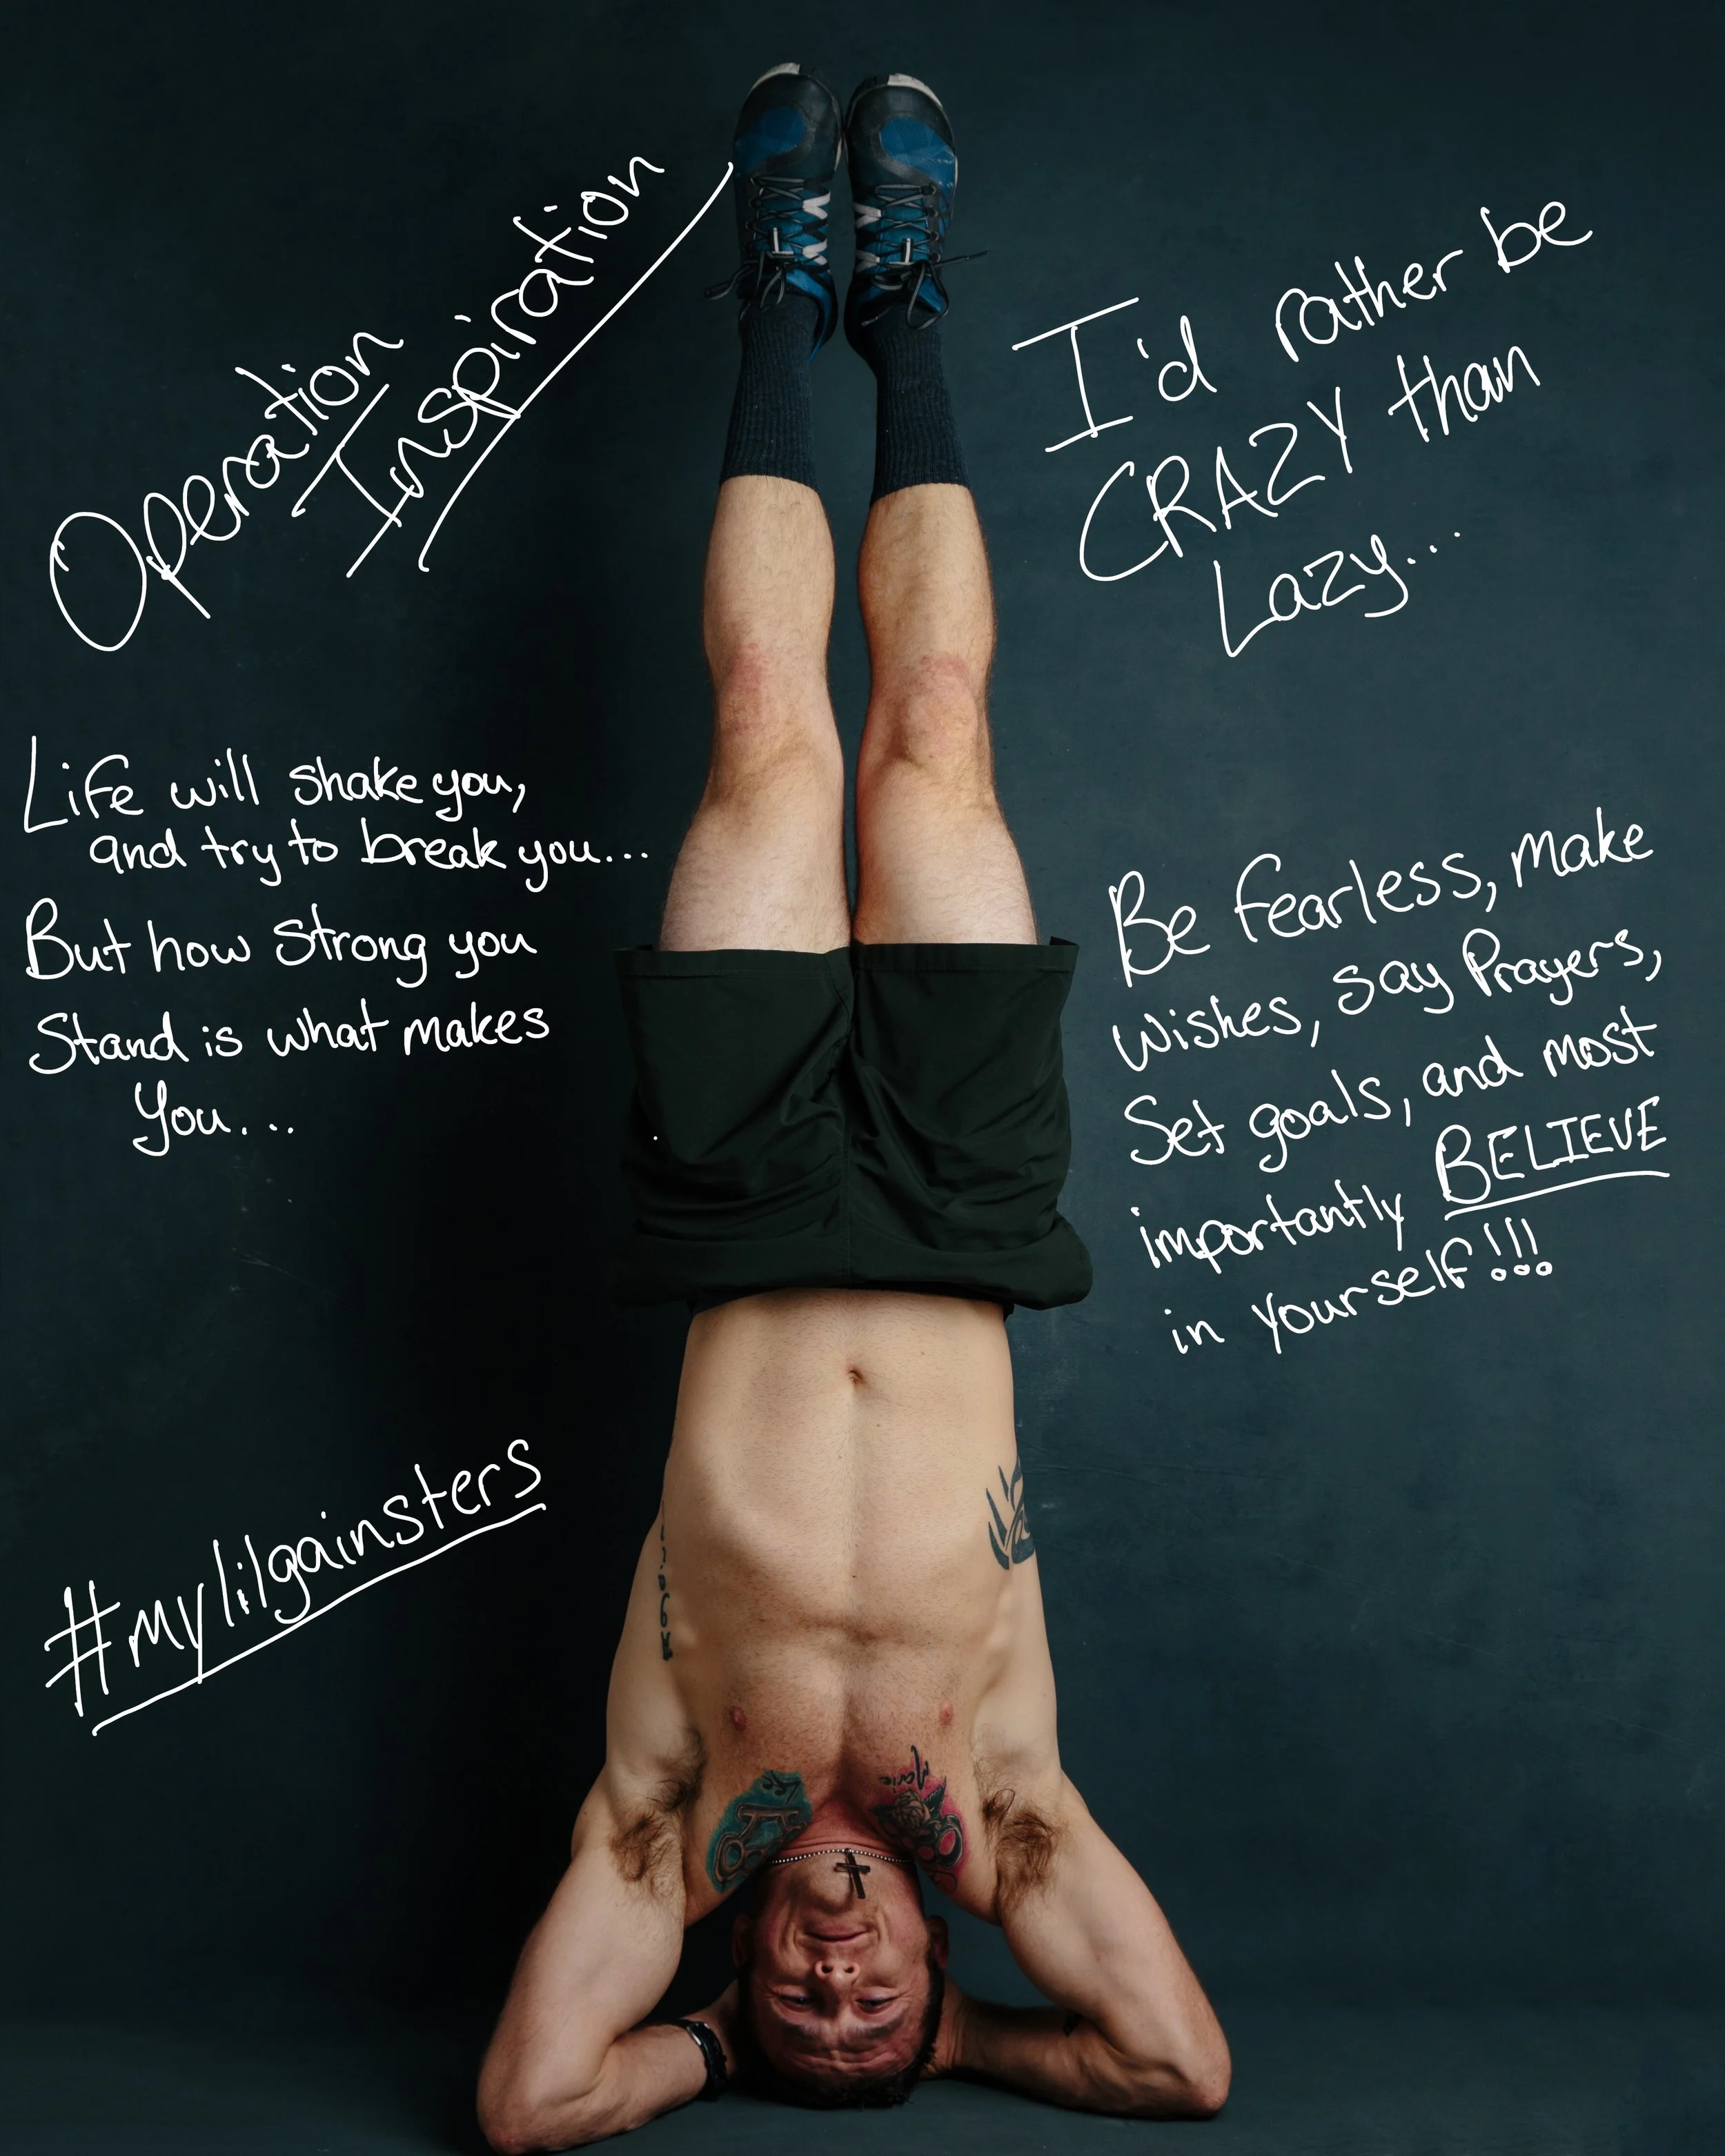 Operation
Inspiration
I'd rather be
CRAZY than
Lazy...
Life will shake you,
and try to break you...
But how strong you
Stand is what makes
You...
Be fearless, make
wishes, say Prayers,
Set goals, and most
importantly BELIEVE
in yourself!!!
#mylilgainsters
Marie